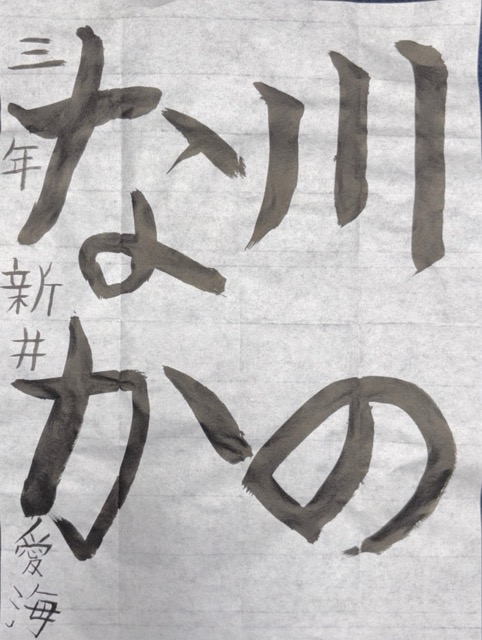 川の
なか
三年 新井 愛海